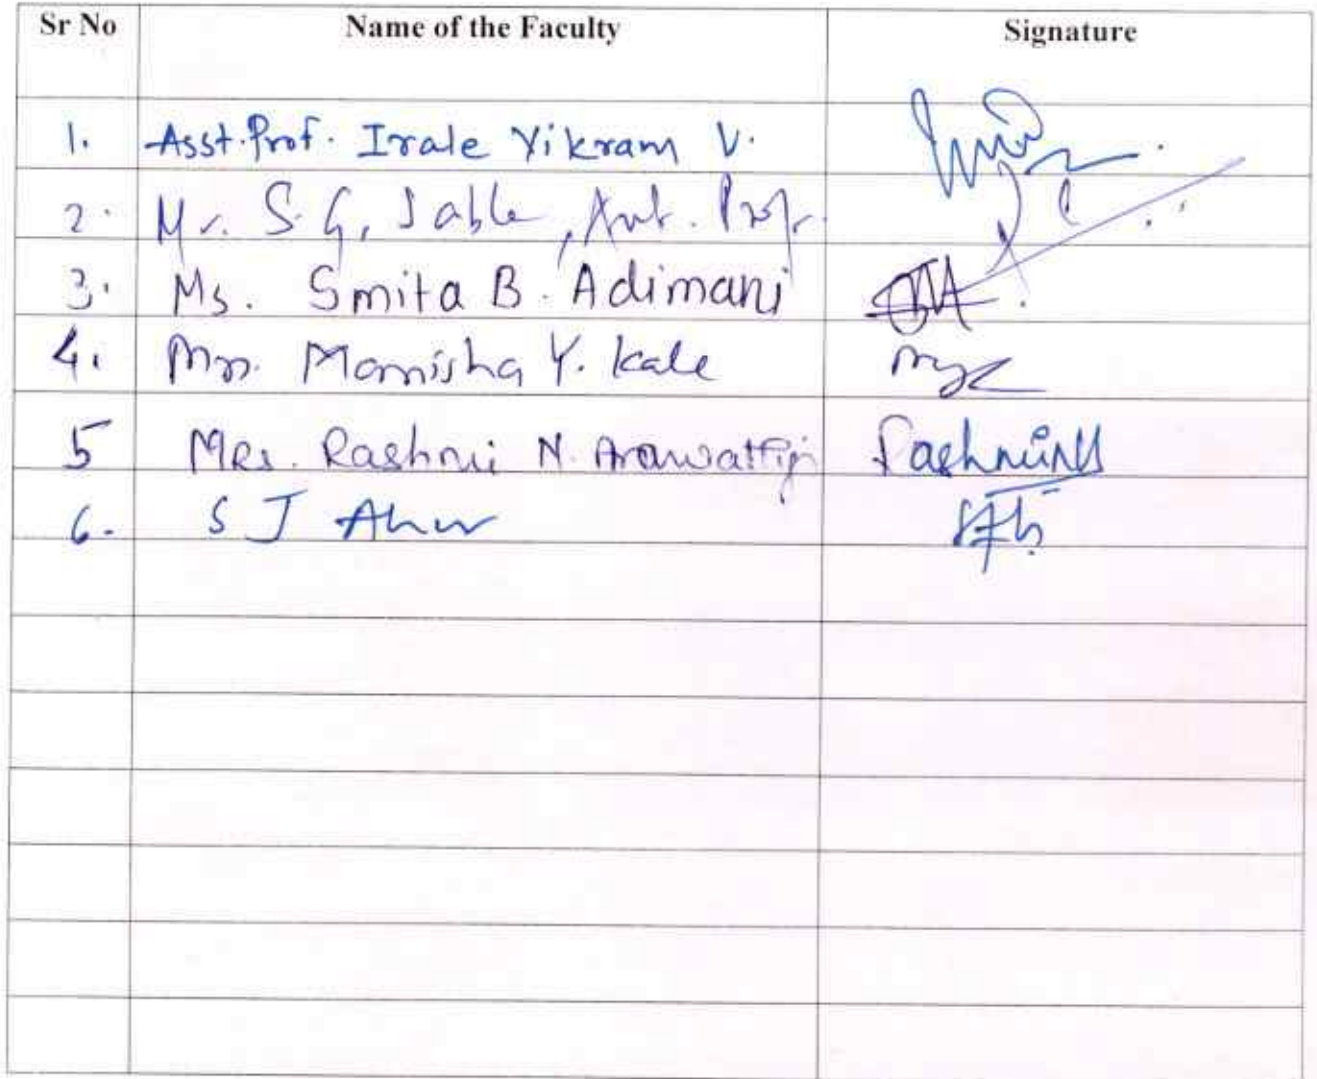 Sr No Name of the Faculty Signature
1. Asst. Prof. Irale Vikram V.
2. Mr. S. G. Jable, Asst. Prof.
3. Ms. Smita B. Adimani
4. Mrs. Manisha Y. Kale
5 Mrs. Rashmi N. Arawattigi RashmiNA
6. S J